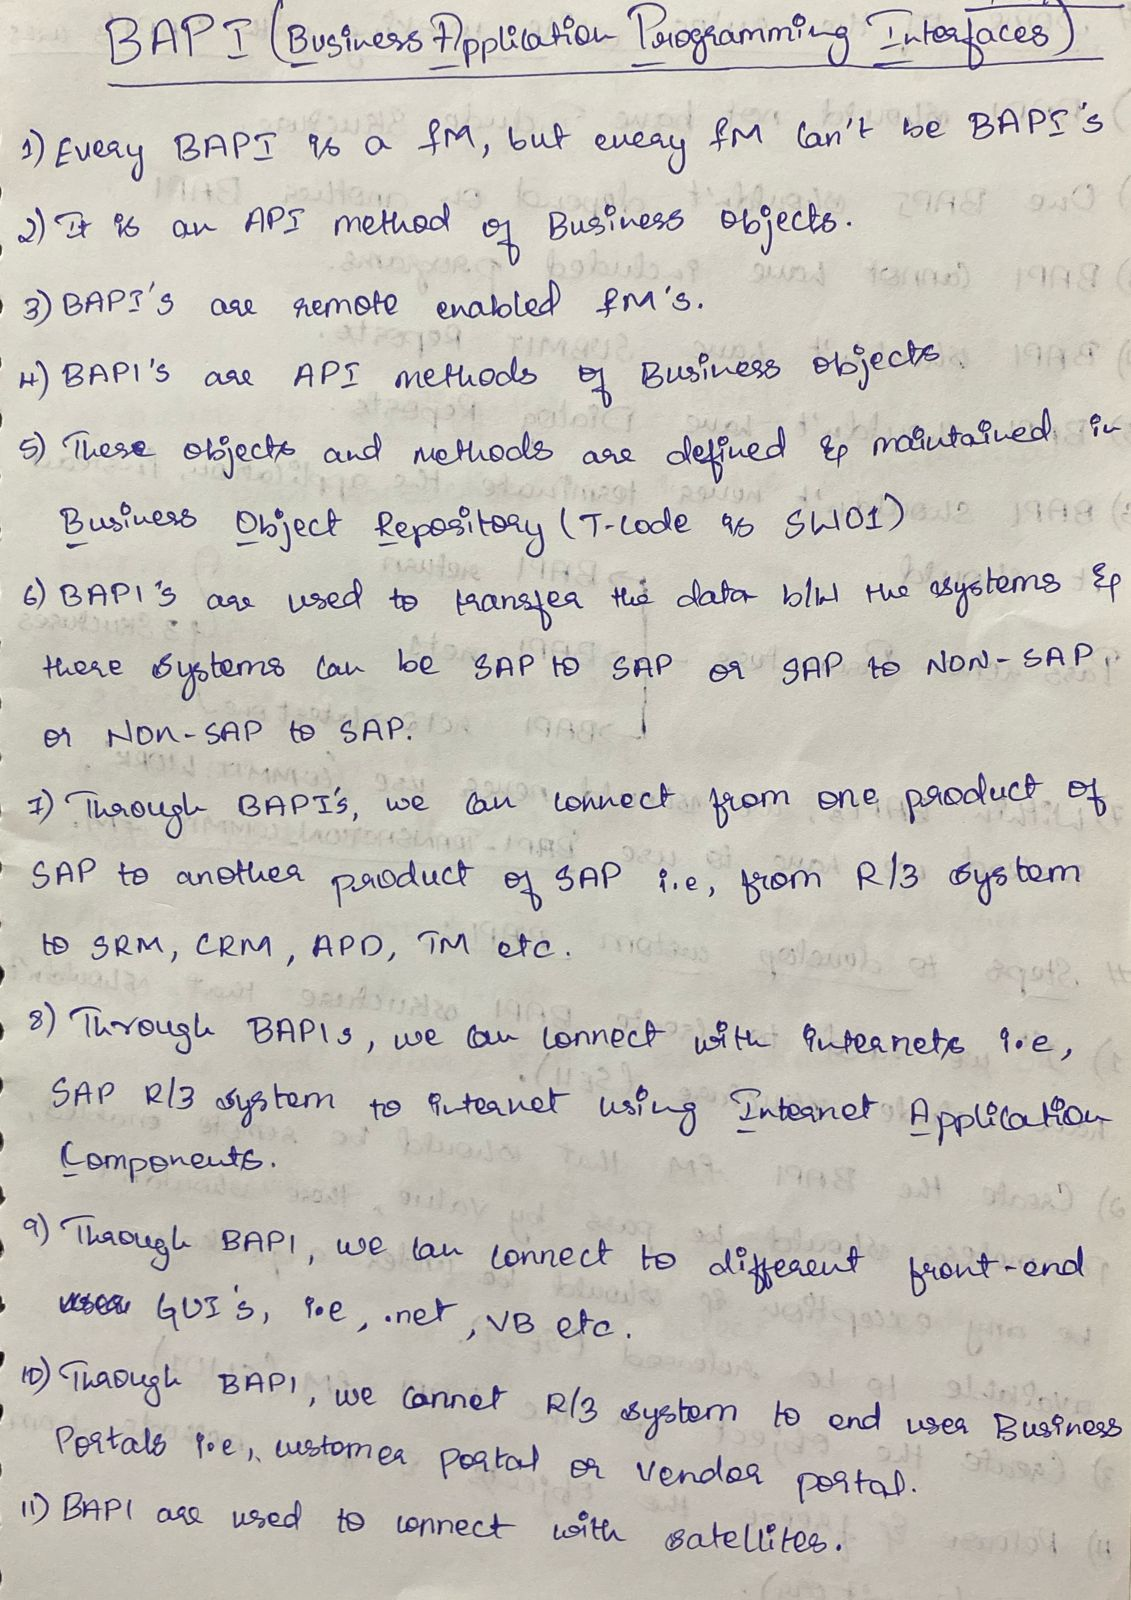 BAPI (Business Application Programming Interfaces)
1) Every BAPI is a FM, but every FM can't be BAPI's
2) It is an API method of Business objects.
3) BAPI's are remote enabled FM's.
4) BAPI's are API methods of Business objects.
5) These objects and methods are defined & maintained in
Business Object Repository (T-code is SWO1)
6) BAPI's are used to transfer the data b/w the systems &
there systems can be SAP to SAP or SAP to NON-SAP
or NON-SAP to SAP.
7) Through BAPI's, we can connect from one product of
SAP to another product of SAP i.e, from R/3 system
to SRM, CRM, APD, TM etc.
8) Through BAPIs, we can connect with internets i.e,
SAP R/3 system to internet using Internet Application
Components.
9) Through BAPI, we can connect to different front-end
user GUI's, i.e, .net, VB etc.
10) Through BAPI, we connet R/3 system to end user Business
Portals i.e., customer portal or vendor portal.
11) BAPI are used to connect with satellites.